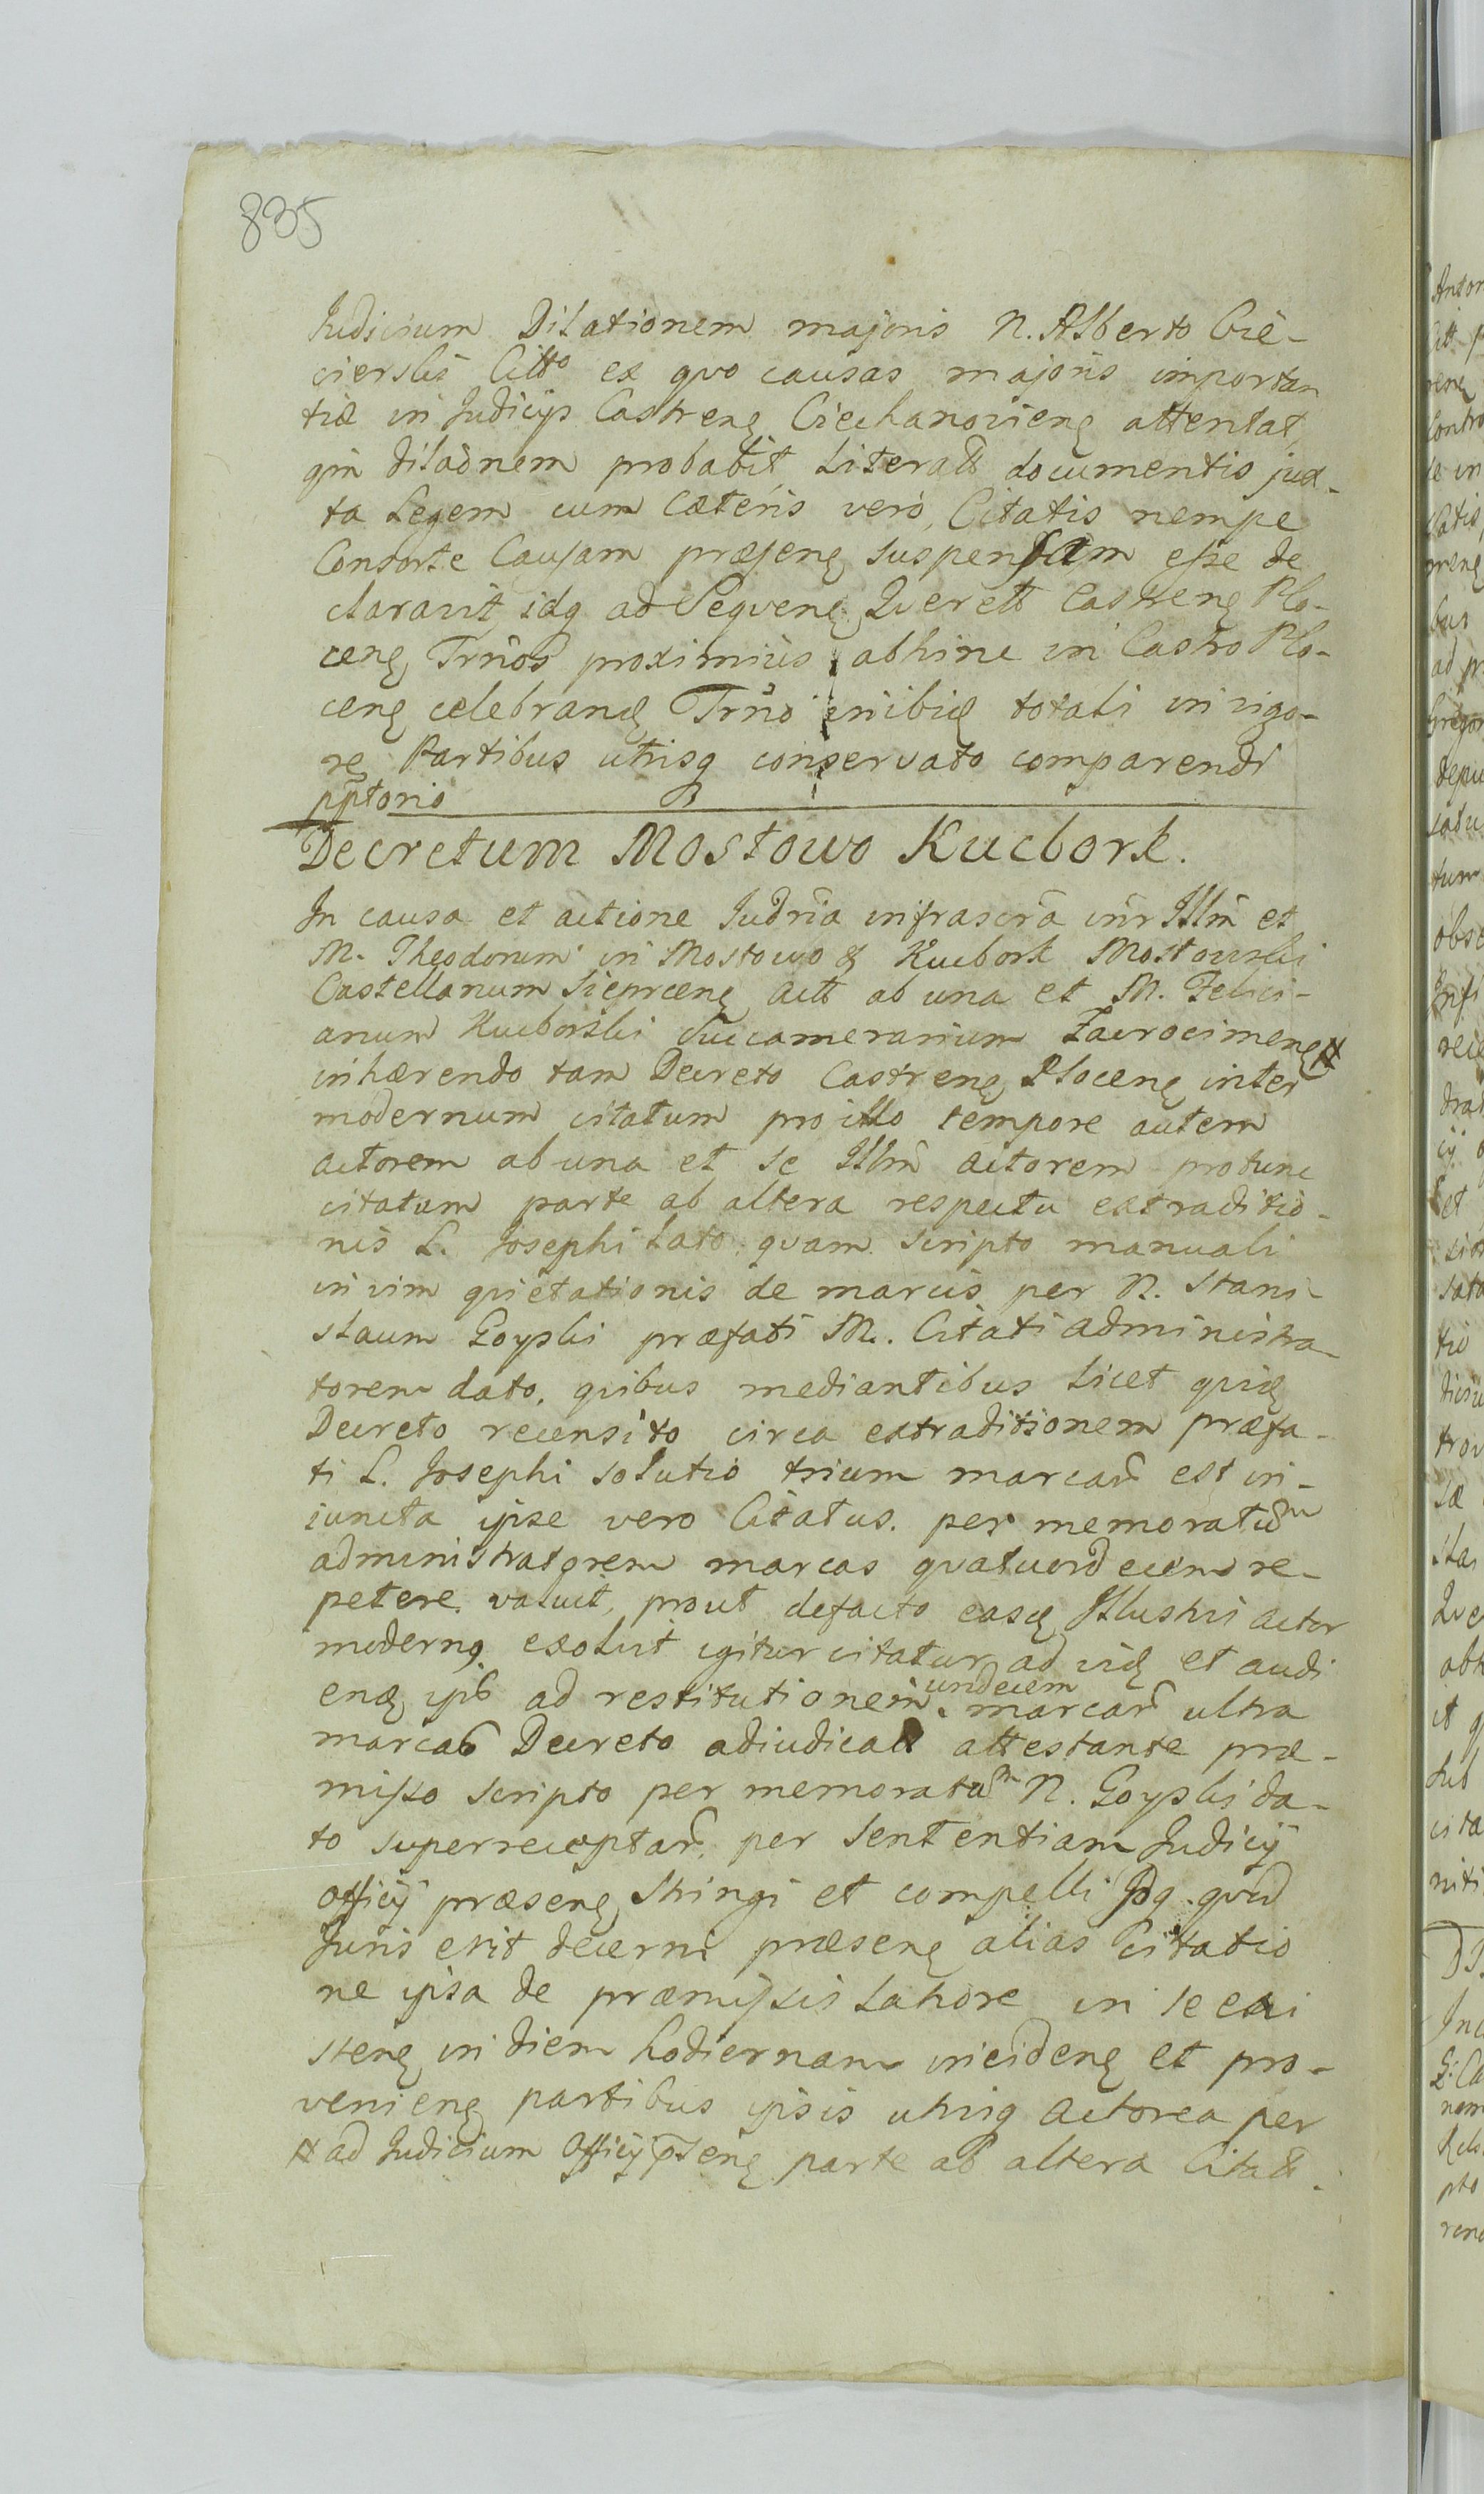 835
Judicium Dilationem majoris N. Alberto Cie-
cierski Citto ex quo causas majoris importan
tiæ in Judicijs Castrenę Ciechanovienę attentat
qm̃ dilãonem probabit Literalt documentis jux-
ta Legem cum Cæteris verò Citatis nempe
Consorte Causam præsenę suspensam esse de
claravit idq ad Sequenę Querelt Castrenę Plo-
cenę Trños proximius abhinc in Castro Plo-
cenę celebranę Trño inibię totali in vigo-
re Partibus utrisq conservato comparendi
pp̃torio
Decretum Mostowo Kucbork.
In causa et actione Judrĩa infrascrã inr Illm̃ et
M. Theodorum in Mostowo & Kucbork Mostowski
Castellanum Sieprcenę Actt ab una et M. Felici-
anum Kucborski Succamerarium Zacrocimenę #
inhærendo tam Decreto Castrenę Plocenę inter
modernum citatum pro illo tempore autem
actorem ab una et se Illm̃ actorem protunc
citatum parte ab altera respectu extraditio-
nis L. Josephi Lato quam scripto manuali
in vim quietationis de marcis per N. Stani-
slaum Goyski præfati M. Citati administra-
torem dato, quibus mediantibus licet quię
Decreto recensito circa extraditionem præfa-
ti L. Josephi solutio trium marcar̃ est in-
iuncta ipse vero Citatus per memoratũm
administratorem marcas quatuordecem re-
petere valuit, prout defacto easę Illustris actor
modernq exolvit igitur citatur ad vię et audi
enę ipõ ad restitutionem undecem marcar̃ ultra
marcas Decreto adiudicatt attestante præ-
misso scripto per memoratũm N. Goyski da-
to superreceptar̃ per Sententiam Judicij
Officij præsenę stringi et compelli Idq quid
Juris erit decerni præsenę alias Citatio
ne ipsa de præmissis Latiore in se exi
stenę in diem hodiernam incidenę et pro-
venienę partibus ipsis utrisq Actorea per
# ad Judicium Officij p̃senę parte ab altera Citatt